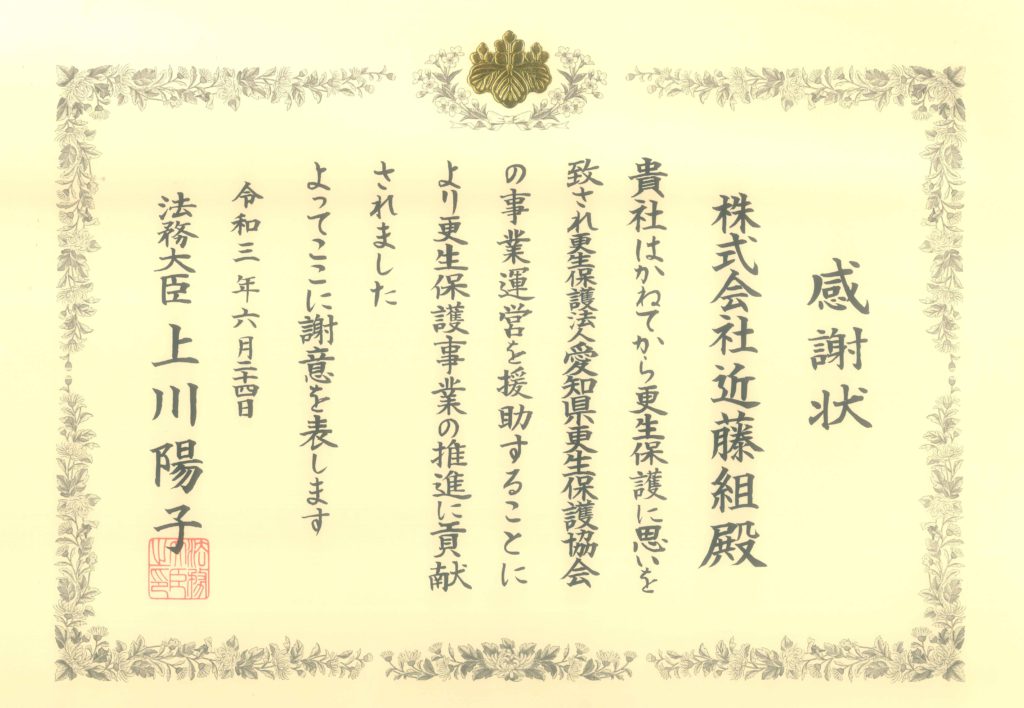 感謝状
株式会社近藤組殿
貴社はかねてから更生保護に思いを
致され更生保護法人愛知県更生保護協会
の事業運営を援助することに
より更生保護事業の推進に貢献
されました
よってここに謝意を表します
令和三年六月二十四日
法務大臣 上川陽子
法務大臣之印